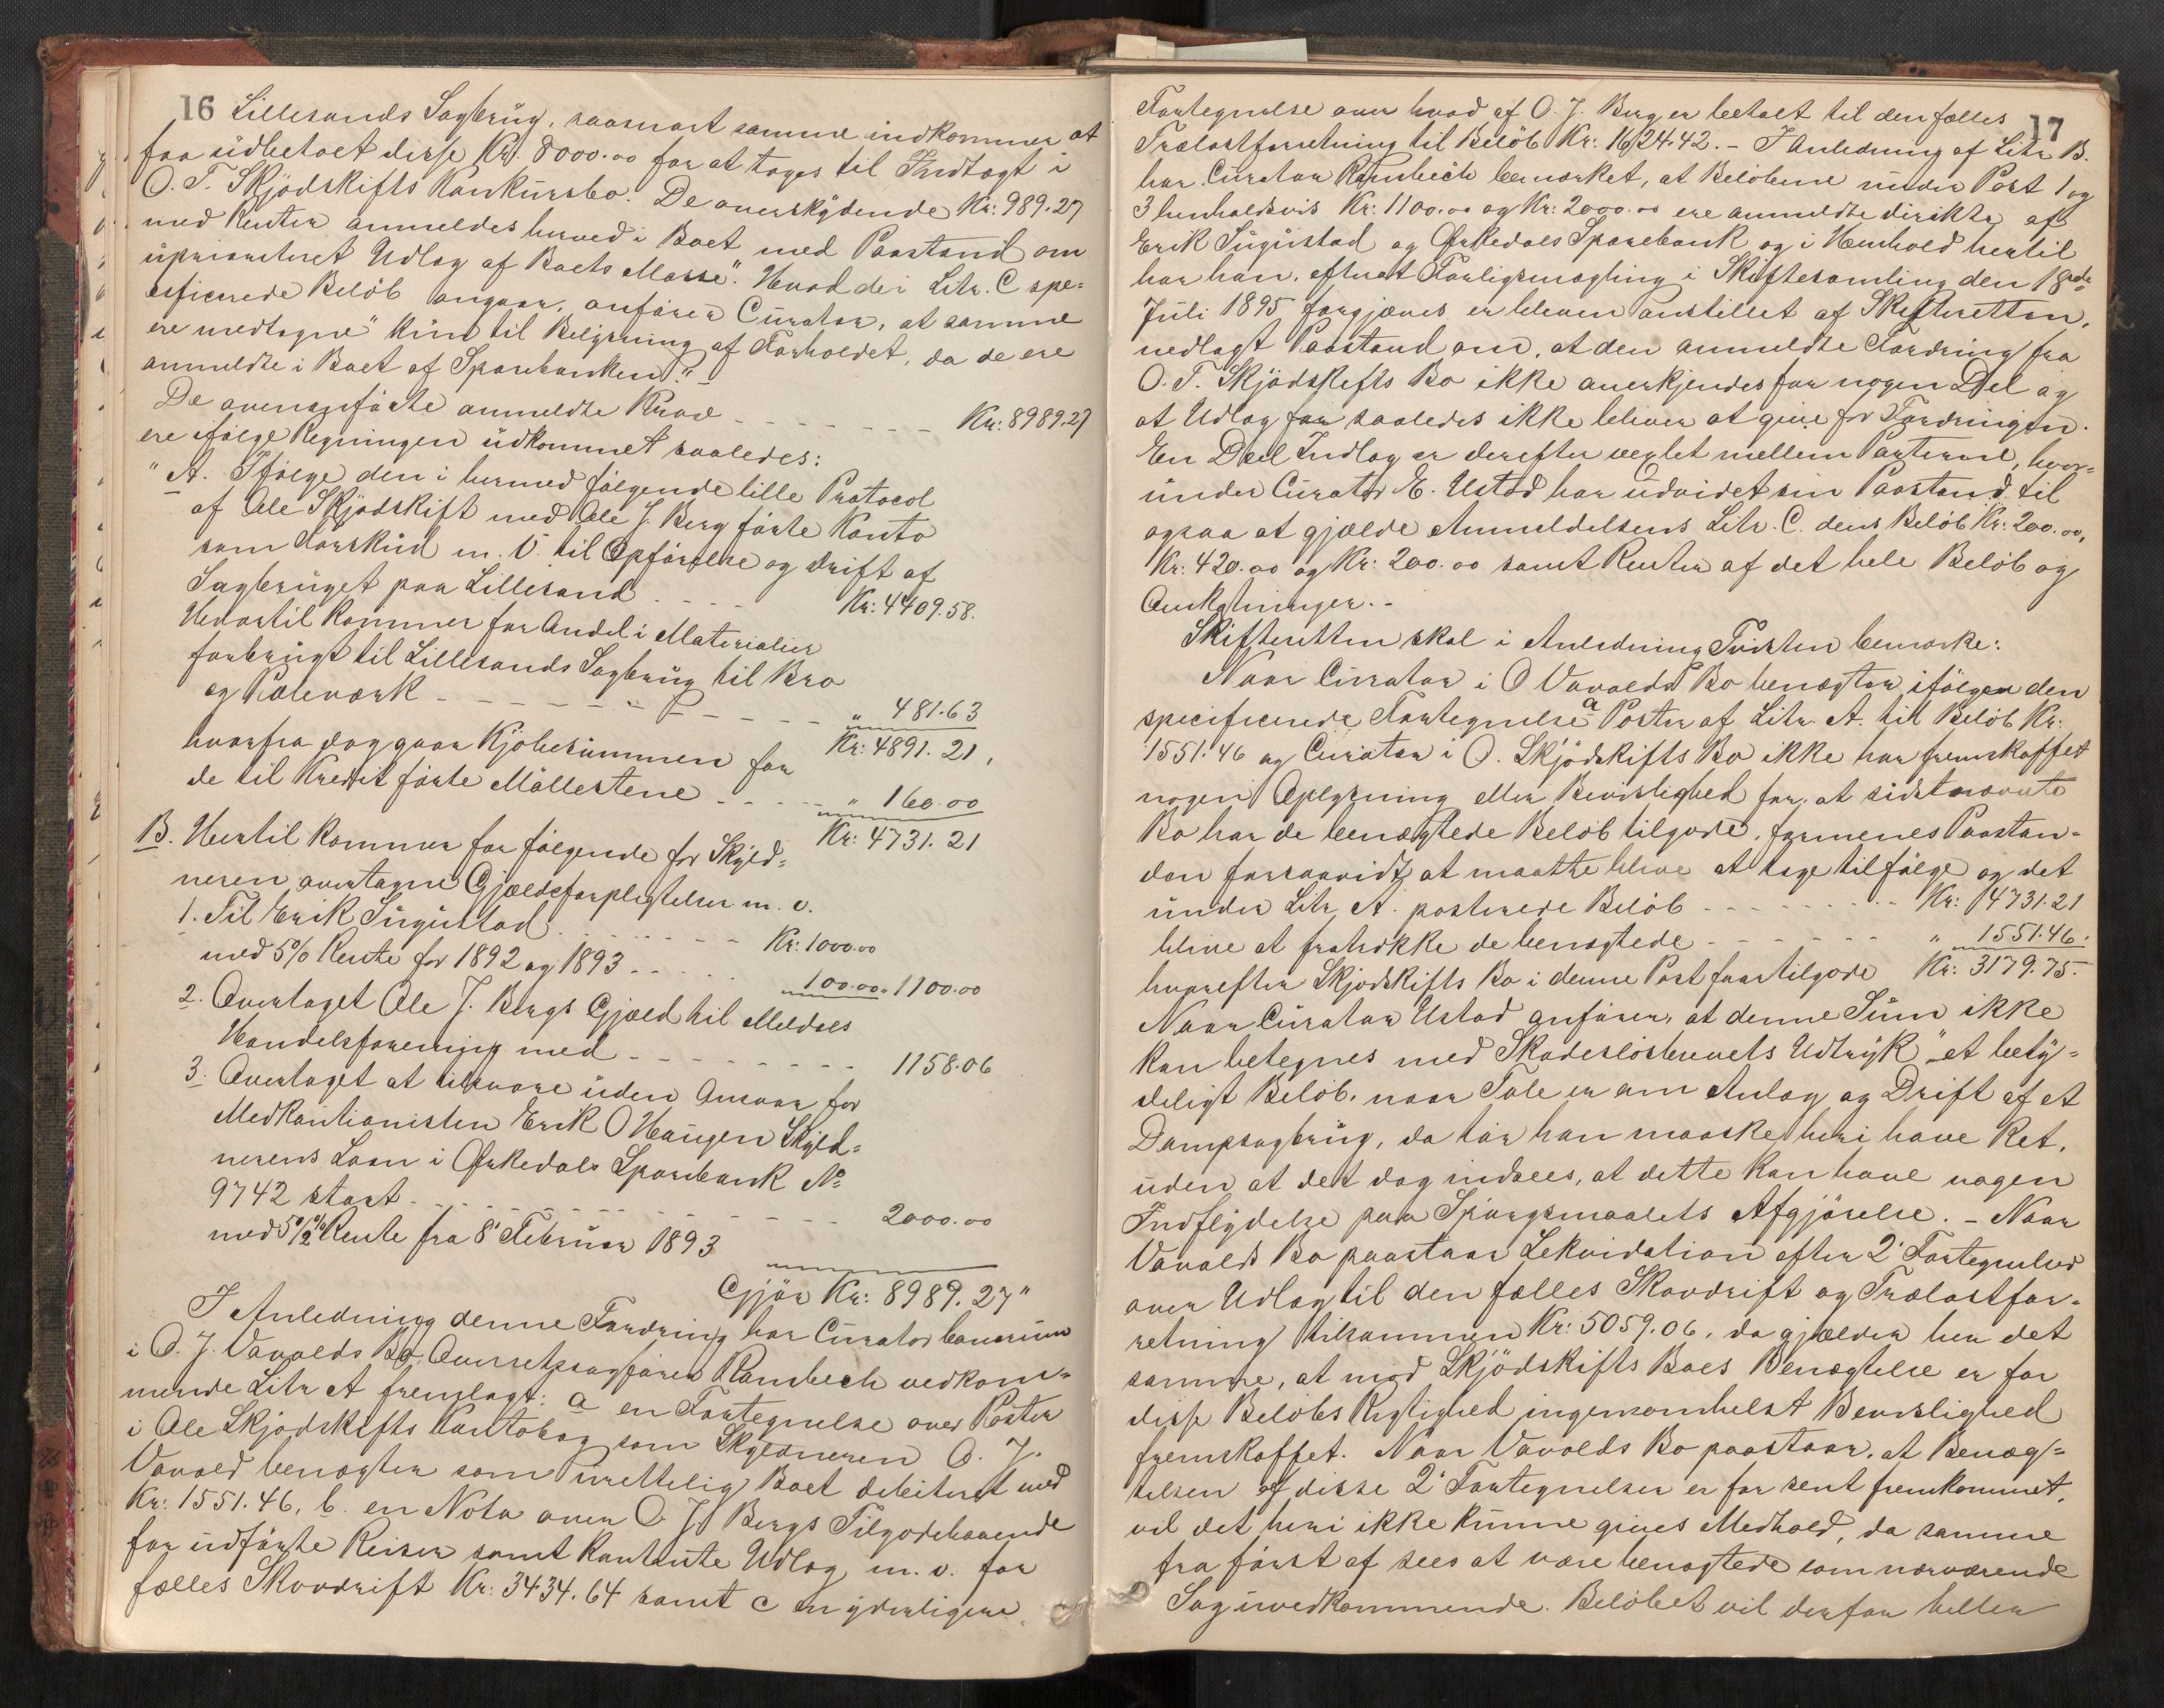 16 Lillesands Sagbrüg, saasnart samme indkommer at
faa üdbetaet disse Kr. 8000.00 for at tages til Indtægt i
O. T. Skjödskifts Konkürsbo. De overskydende Kr: 989.27
med Renter anmeldes herved i Boet med Paastand om
üprioriteret Udlæg af Boets Masse". Hvad de i Litr. C spe-
cificerede Beløb angaar, anfører Cürator, at samme
ere medtagne "kün til Belysning af Forholdet, da de ere
anmeldte i Boet af Sparebanken". -
De ovenanførte anmeldte Krav - - - - - - - Kr: 8989.27
ere ifølge Regningen üdkommet saaledes:
"A. Ifølge den i hermed følgende lille Protocol
af Ole Skjödskift med Ole J. Berg førte Konto
som Forsküd m. V. til Opførelse og Drift af
Sagbrüget paa Lillesand - - - - Kr: 4409.58.
Hvortil kommer for Andel i Materialier
forbrügt til Lillesands Sagbrüg til Bro
og Pæleværk - - - - - - - - - - - " 481.63
Kr: 4891.21,
hvorfra dog gaar Kjöbesümmen for
de til Kredit førte Möllestene - - - - - " 160.00
Kr: 4731.21
B. Hertil kommer for følgende for Skyld-
neren overtagne Gjældsforpligtelser m. v.
1. Til Erik Sügüstad - - - - - - - Kr: 1000.00
med 5% Rente for 1892 og 1893 - - - - - 100.00 " 1100.00
2. Overtaget Ole J. Bergs Gjæld til Meldals
Handelsforening med - - - - - - - - 1158.06
3. Overtaget at tilsvare üden Ansvar for
Medkautionisten Erik O Haugen Skyld-
nerens Laan i Ørkedals Sparebank No
9742 stort - - - - - - - - - - - 2000.00
med 5½% Rente fra 8' Februar 1893
Gjör Kr: 8989.27"
I Anledning denne Fordring har Cürator bonorum
i O. J. Vavolds Bo, Overretssagfører Rambech vedkom-
mende Litr A fremlagt: a en Fortegnelse over Poster
i Ole Skjödskifts Kontobog som Skyldneren O. J.
Vavold benægter som ürettelig Boet debiteret med
Kr: 1551.46, b. en Nota over O. J. Bergs Tilgodehavende
for üdførte Reiser samt kontante Udlæg m. v. for
fælles Skovdrift Kr: 3434.64 samt c en yderligere
17
Fortegnelse over hvad af O. J. Berg er betaet til den fælles
Trælastforretning til Beløb Kr: 1624.42. - I Anledning af Litr B.
har Cürator Rambech bemærket, at Beløbene ünder Post 1 og
3 henholdsvis Kr: 1100.00 og Kr: 2000.00 ere anmeldte direkte af
Erik Sügüstad og Ørkedals Sparebank og i Henhold hertil
har han, efterat Forligsmægling i Skiftesamling den 18de
Juli 1895 forgjæves er bleven anstillet af Skifteretten,
nedlagt Paastand om, at den anmeldte Fordring fra
O. T. Skjödskifts Bo ikke anerkjendes for nogen Del og
at Udlæg saaledes ikke bliver at give for Fordringen.
En Deel Indlæg er derefter vexlet mellem Parterne, hvor-
ünder Curator E. Ustad har üdvidet sin Paastand til
ogsaa at gjælde Anmeldelsens Litr. C. dens Beløb Kr: 200.00,
Kr: 420.00 og Kr: 200.00 samt Renter af det hele Beløb og
Omkostninger. -
Skifteretten skal i Anledning Tvisten bemærke:
Naar Cürator i O Vavolds Bo benægter ifølge den
specificerede Fortegnelse a Poster af Litr. A. til Beløb Kr:
1551.46 og Cürator i O. Skjödskifts Bo ikke har fremskaffet
nogen Oplysning eller Bevislighed for, at sidstnævnte
Bo har de benægtede Beløb tilgode, formenes Paastan-
den forsaavidt at maatte blive at tage tilfølge og det
ünder Litr A. posterede Beløb - - - - - - - - Kr: 4731.21
blive at fratrække de benægtede - - - - - - " 1551.46.
hvorefter Skjödskifts Bo i denne Post faar tilgode Kr: 3179.75.
Naar Cürator Ustad anfører, at denne Süm ikke
kan betegnes med Skadesløsbrevets Udtryk "et bety-
deligt Beløb, naar Tale er om Anlæg og Drift af et
Dampsagbrüg, da tör han maaske heri have Ret,
üden at det dog indsees, at dette kan have nogen
Indflydelse paa Spørgsmaalets Afgjørelse. - Naar
Vavolds Bo paastaar Lekvidation efter 2' Fortegnelser
over Udlæg til den fælles Skovdrift og Trælastfor-
retning tilsammen Kr: 5059.06, da gjælder her det
samme, at mod Skjödskifts Boes Benægtelse er for
disse Beløbs Rigtighed ingensomhelst Bevislighed
fremskaffet. Naar Vavolds Bo paastaar, at Benæg-
telsen af disse 2' Fortegnelser er for sent fremkommet,
vil det heri ikke künne gives Medhold, da samme
fra først af sees at være benægtede som nærværende
Sag üvedkommende. Beløbet vil derfor heller